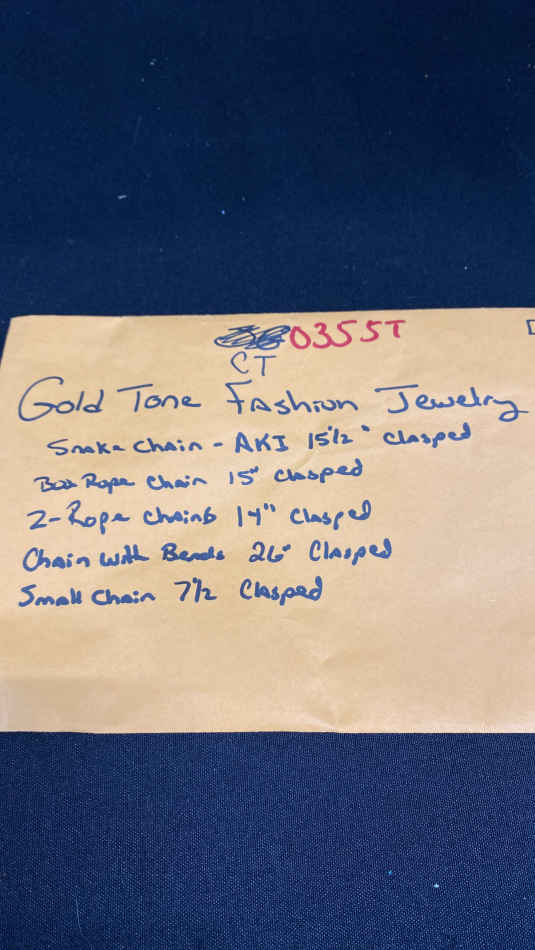 0355T
CT
Gold Tone Fashion Jewelry
Snake Chain - AKI 15 1/2" Clasped
Rope Chain 15" Clasped
2-Rope Chains 14" Clasped
Chain with Beads 26" Clasped
Small Chain 7 1/2 Clasped